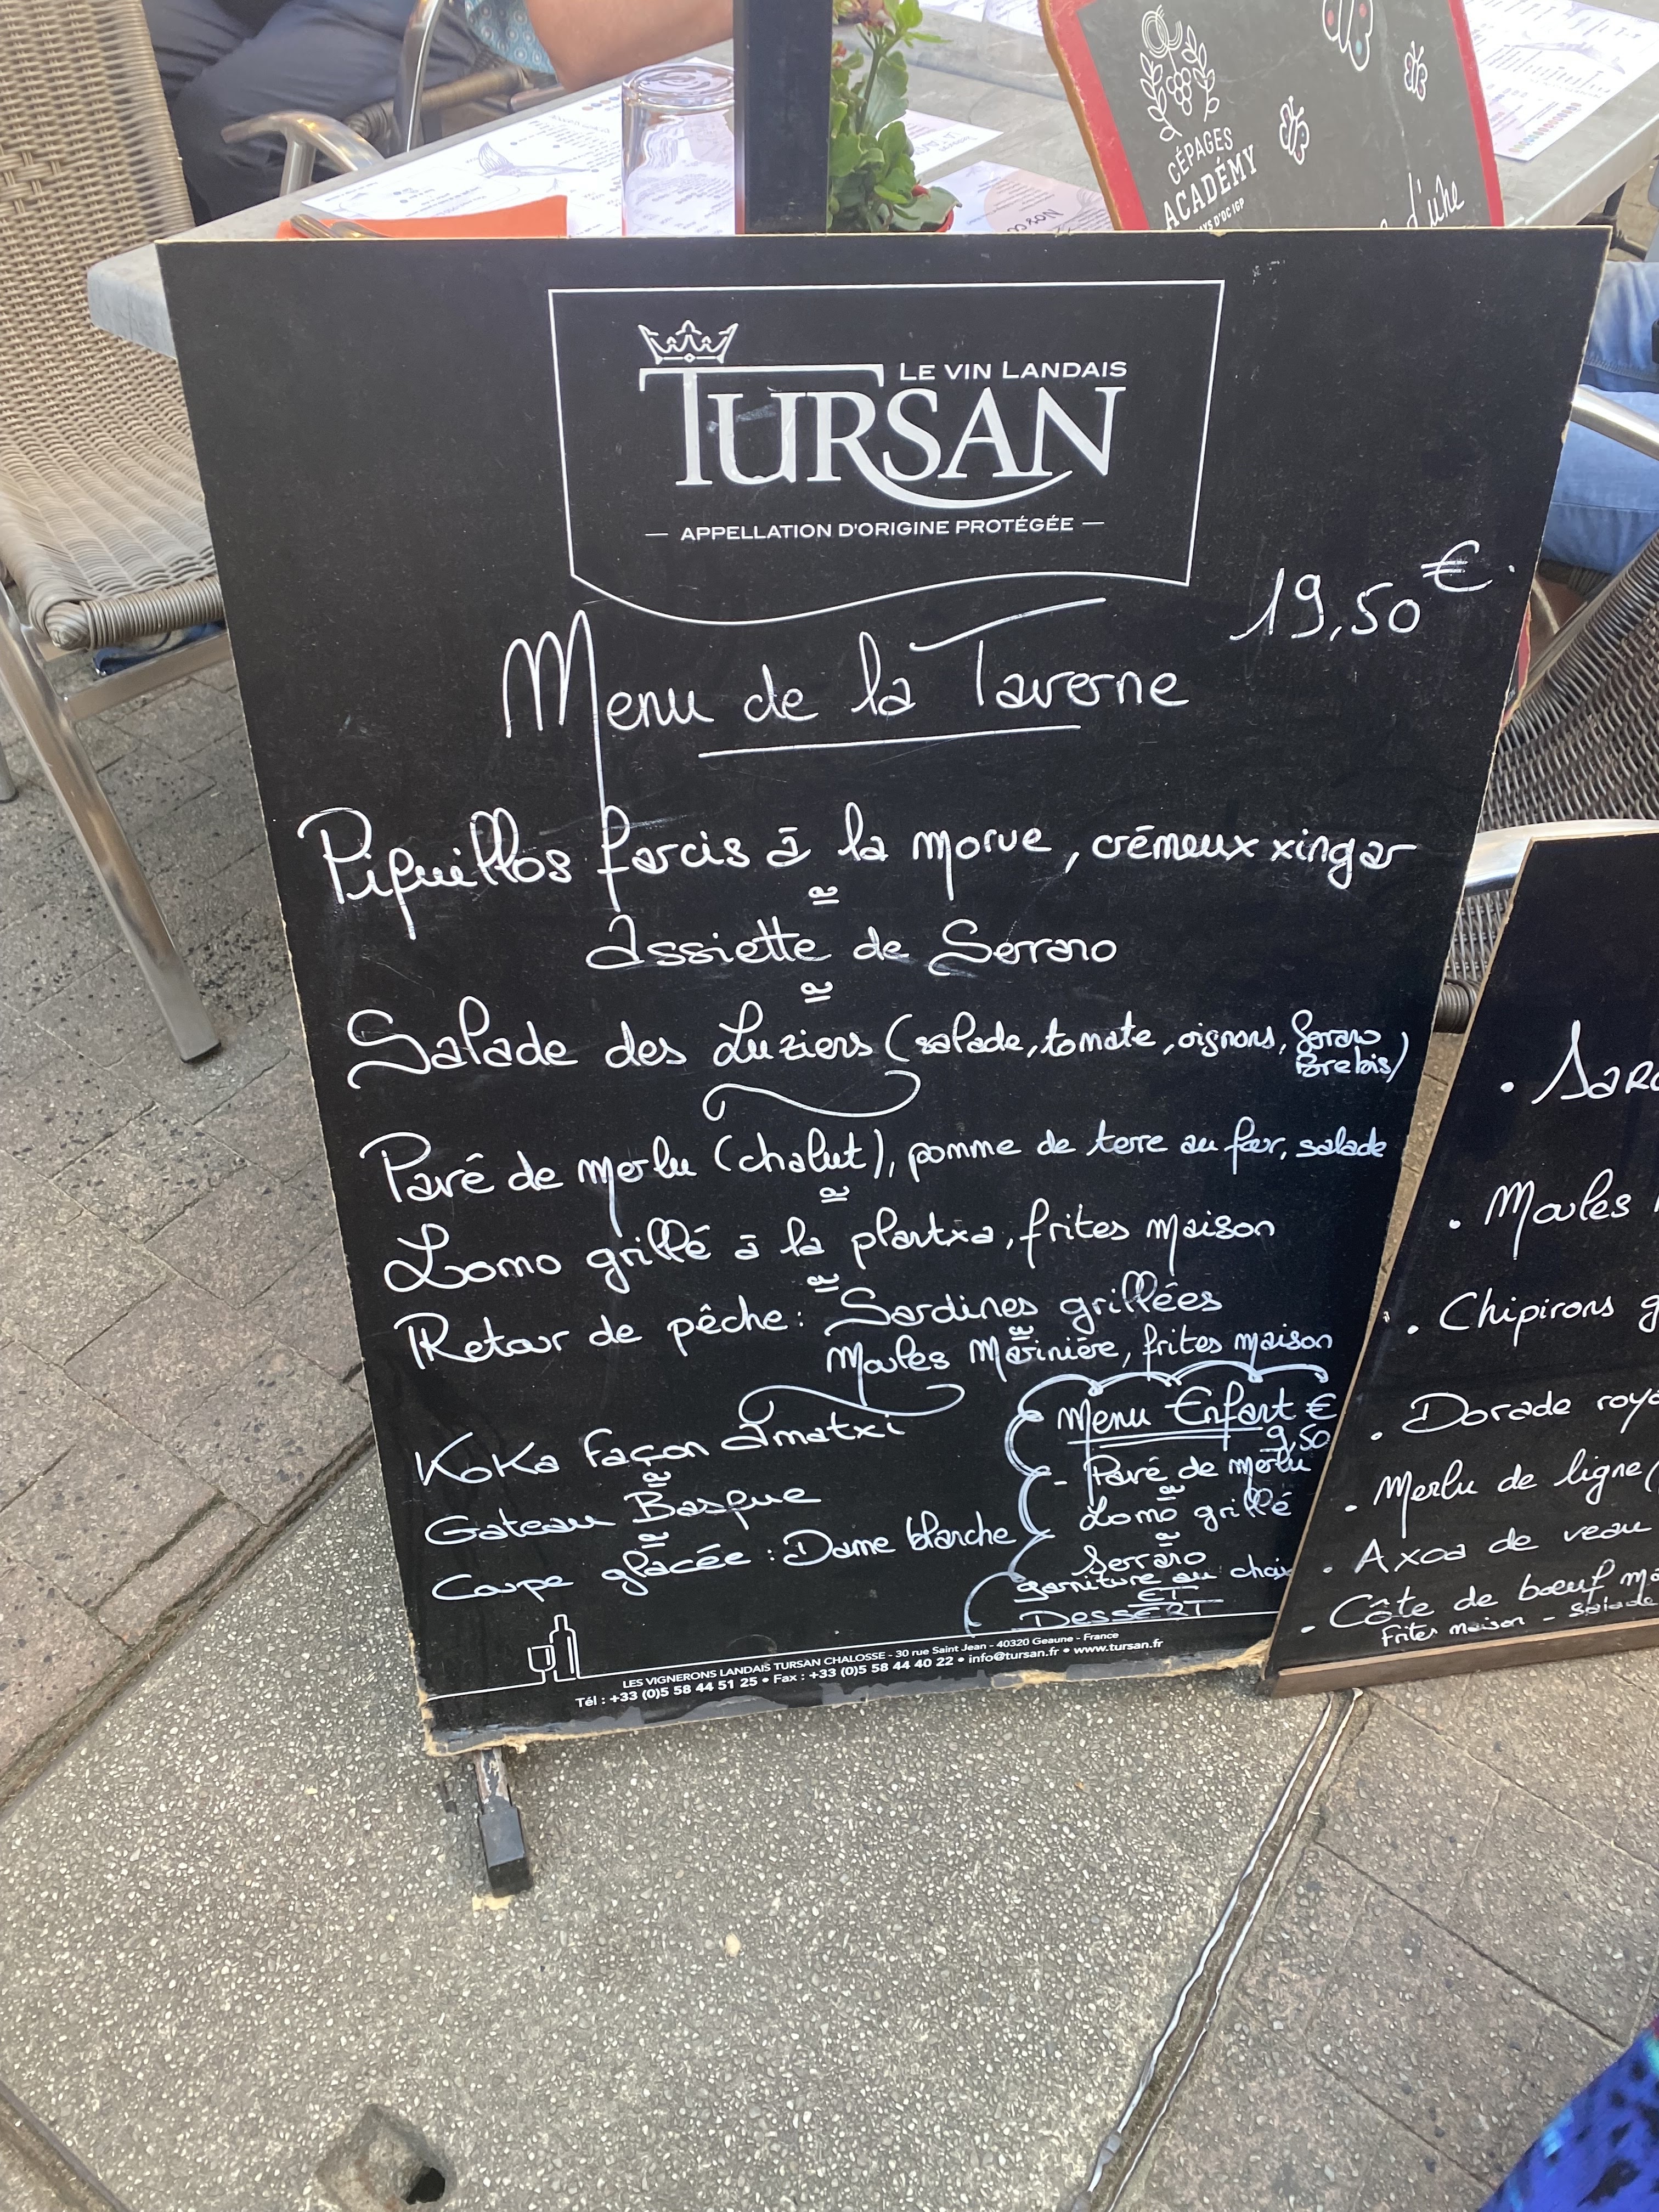 CÉPAGES
ACADÉMY
PAYS D'OC IGP
d'une
LE VIN LANDAIS
TURSAN
— APPELLATION D'ORIGINE PROTÉGÉE —
19,50€
Menu de la Taverne
Piquillos farcis à la morue, crémeux xingar
Assiette de Serrano
Salade des Luziens (salade, tomate, oignons, Serrano
Brebis)
Pavé de merlu (chalut), pomme de terre au four, salade
Lomo grillé à la plantxa, frites maison
Retour de pêche: Sardines grillées
Moules Marinière, frites maison
KoKa façon Amatxi
Gateau Basque
Coupe glacée : Dame blanche
Menu Enfant €
9,50
- Pavé de merlu
Lomo grillé
Serrano
garniture au choix
ET
DESSERT
LES VIGNERONS LANDAIS TURSAN CHALOSSE - 30 rue Saint Jean - 40320 Geaune - France
Tél : +33 (0)5 58 44 51 25 • Fax : +33 (0)5 58 44 40 22 • info@tursan.fr • www.tursan.fr
. Moules
. Chipirons g
. Dorade roya
. Merlu de ligne (
. Axoa de veau
. Côte de boeuf
Frites maison - Salade